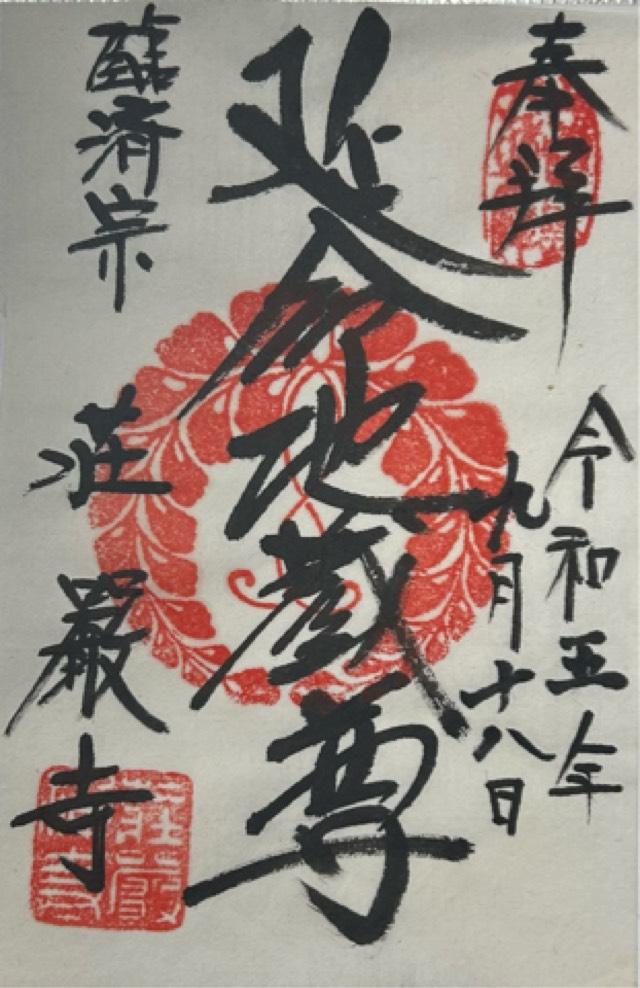 奉拝
令和五年
九月十八日
延命地蔵尊
臨済宗
荘嚴寺